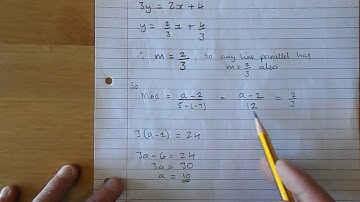 3y = 2x + 4
y = 2/3 x + 4/3
∴ m = 2/3, so any line parallel has
m = 2/3 also
So
Mnc = a-2/5-(-7) = a-2/12 = 2/3
3(a-2) = 24
3a-6 = 24
3a = 30
a = 10